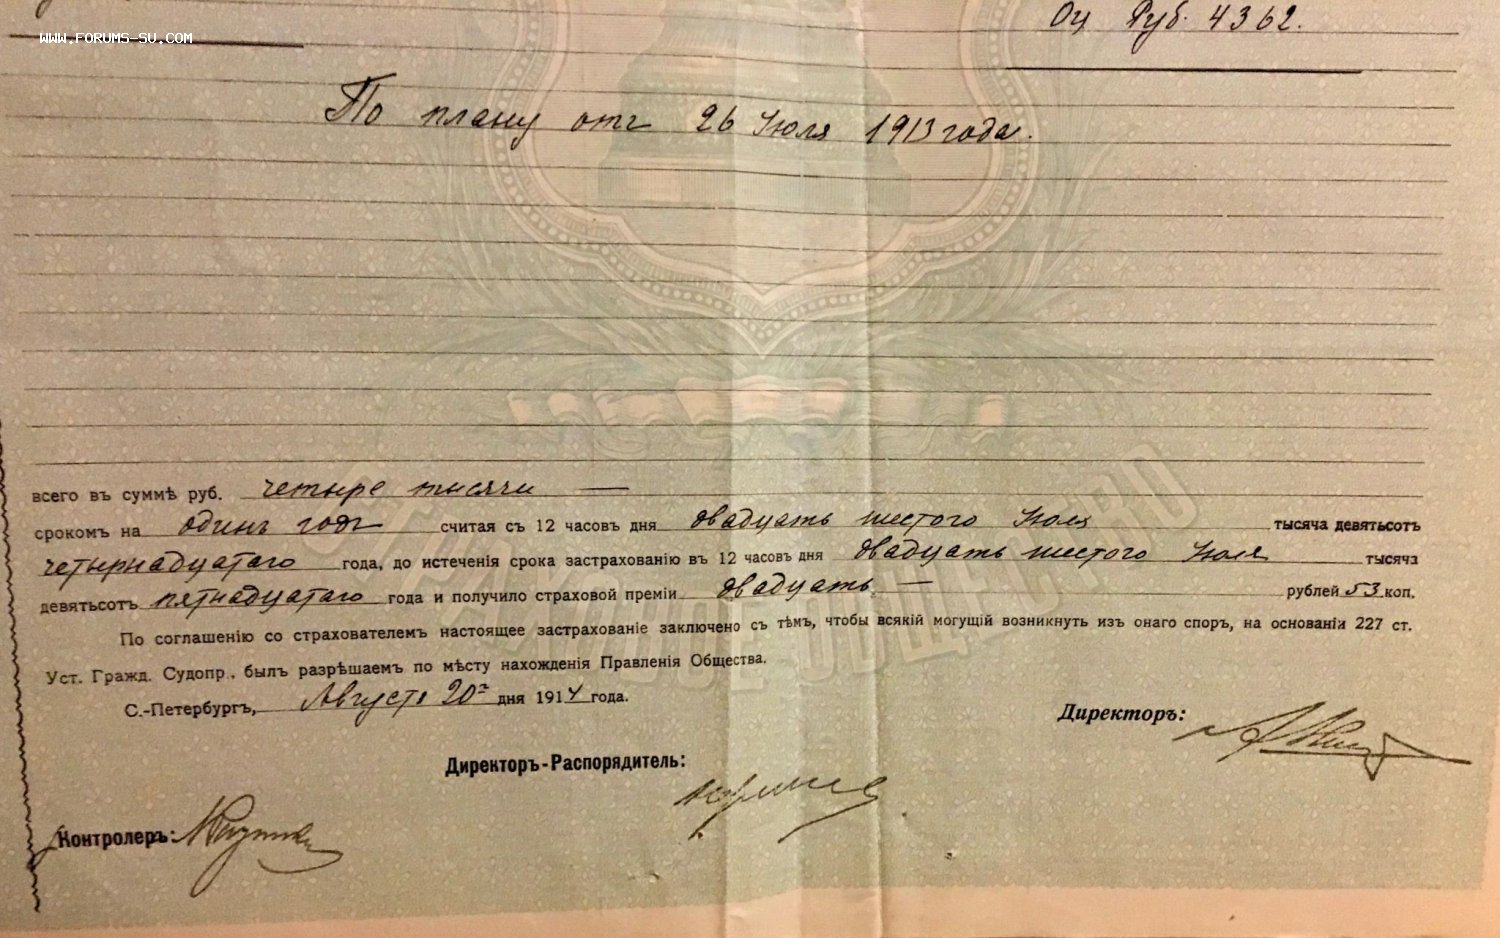 WWW.FORUMS-SU.COM
Оц. Руб. 4362.
По плану отъ 26 Июля 1913 года.
всего въ суммѣ руб. четыре тысячи —
срокомъ на одинъ годъ считая съ 12 часовъ дня двадцать шестого Июля тысяча девятьсотъ
четырнадцатаго года, до истеченія срока застрахованію въ 12 часовъ дня двадцать шестого Июля тысяча
девятьсотъ пятнадцатаго года и получило страховой преміи двадцать — рублей 53 коп.
По соглашенію со страхователемъ настоящее застрахованіе заключено съ тѣмъ, чтобы всякій могущій возникнуть изъ онаго споръ, на основаніи 227 ст.
Уст. Гражд. Судопр., былъ разрѣшаемъ по мѣсту нахожденія Правленія Общества.
С.-Петербургъ, Августа 20 дня 1914 года.
Директоръ:
Директоръ-Распорядитель:
Контролеръ:
ОБЩЕСТВО